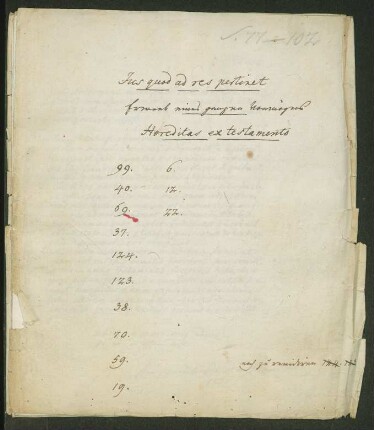 S. 77–102
Jus quod ad res pertinet
Hereditas ex testamento
99. 6.
40. 12.
69. 22.
37.
124.
123.
38.
70.
59.
19.